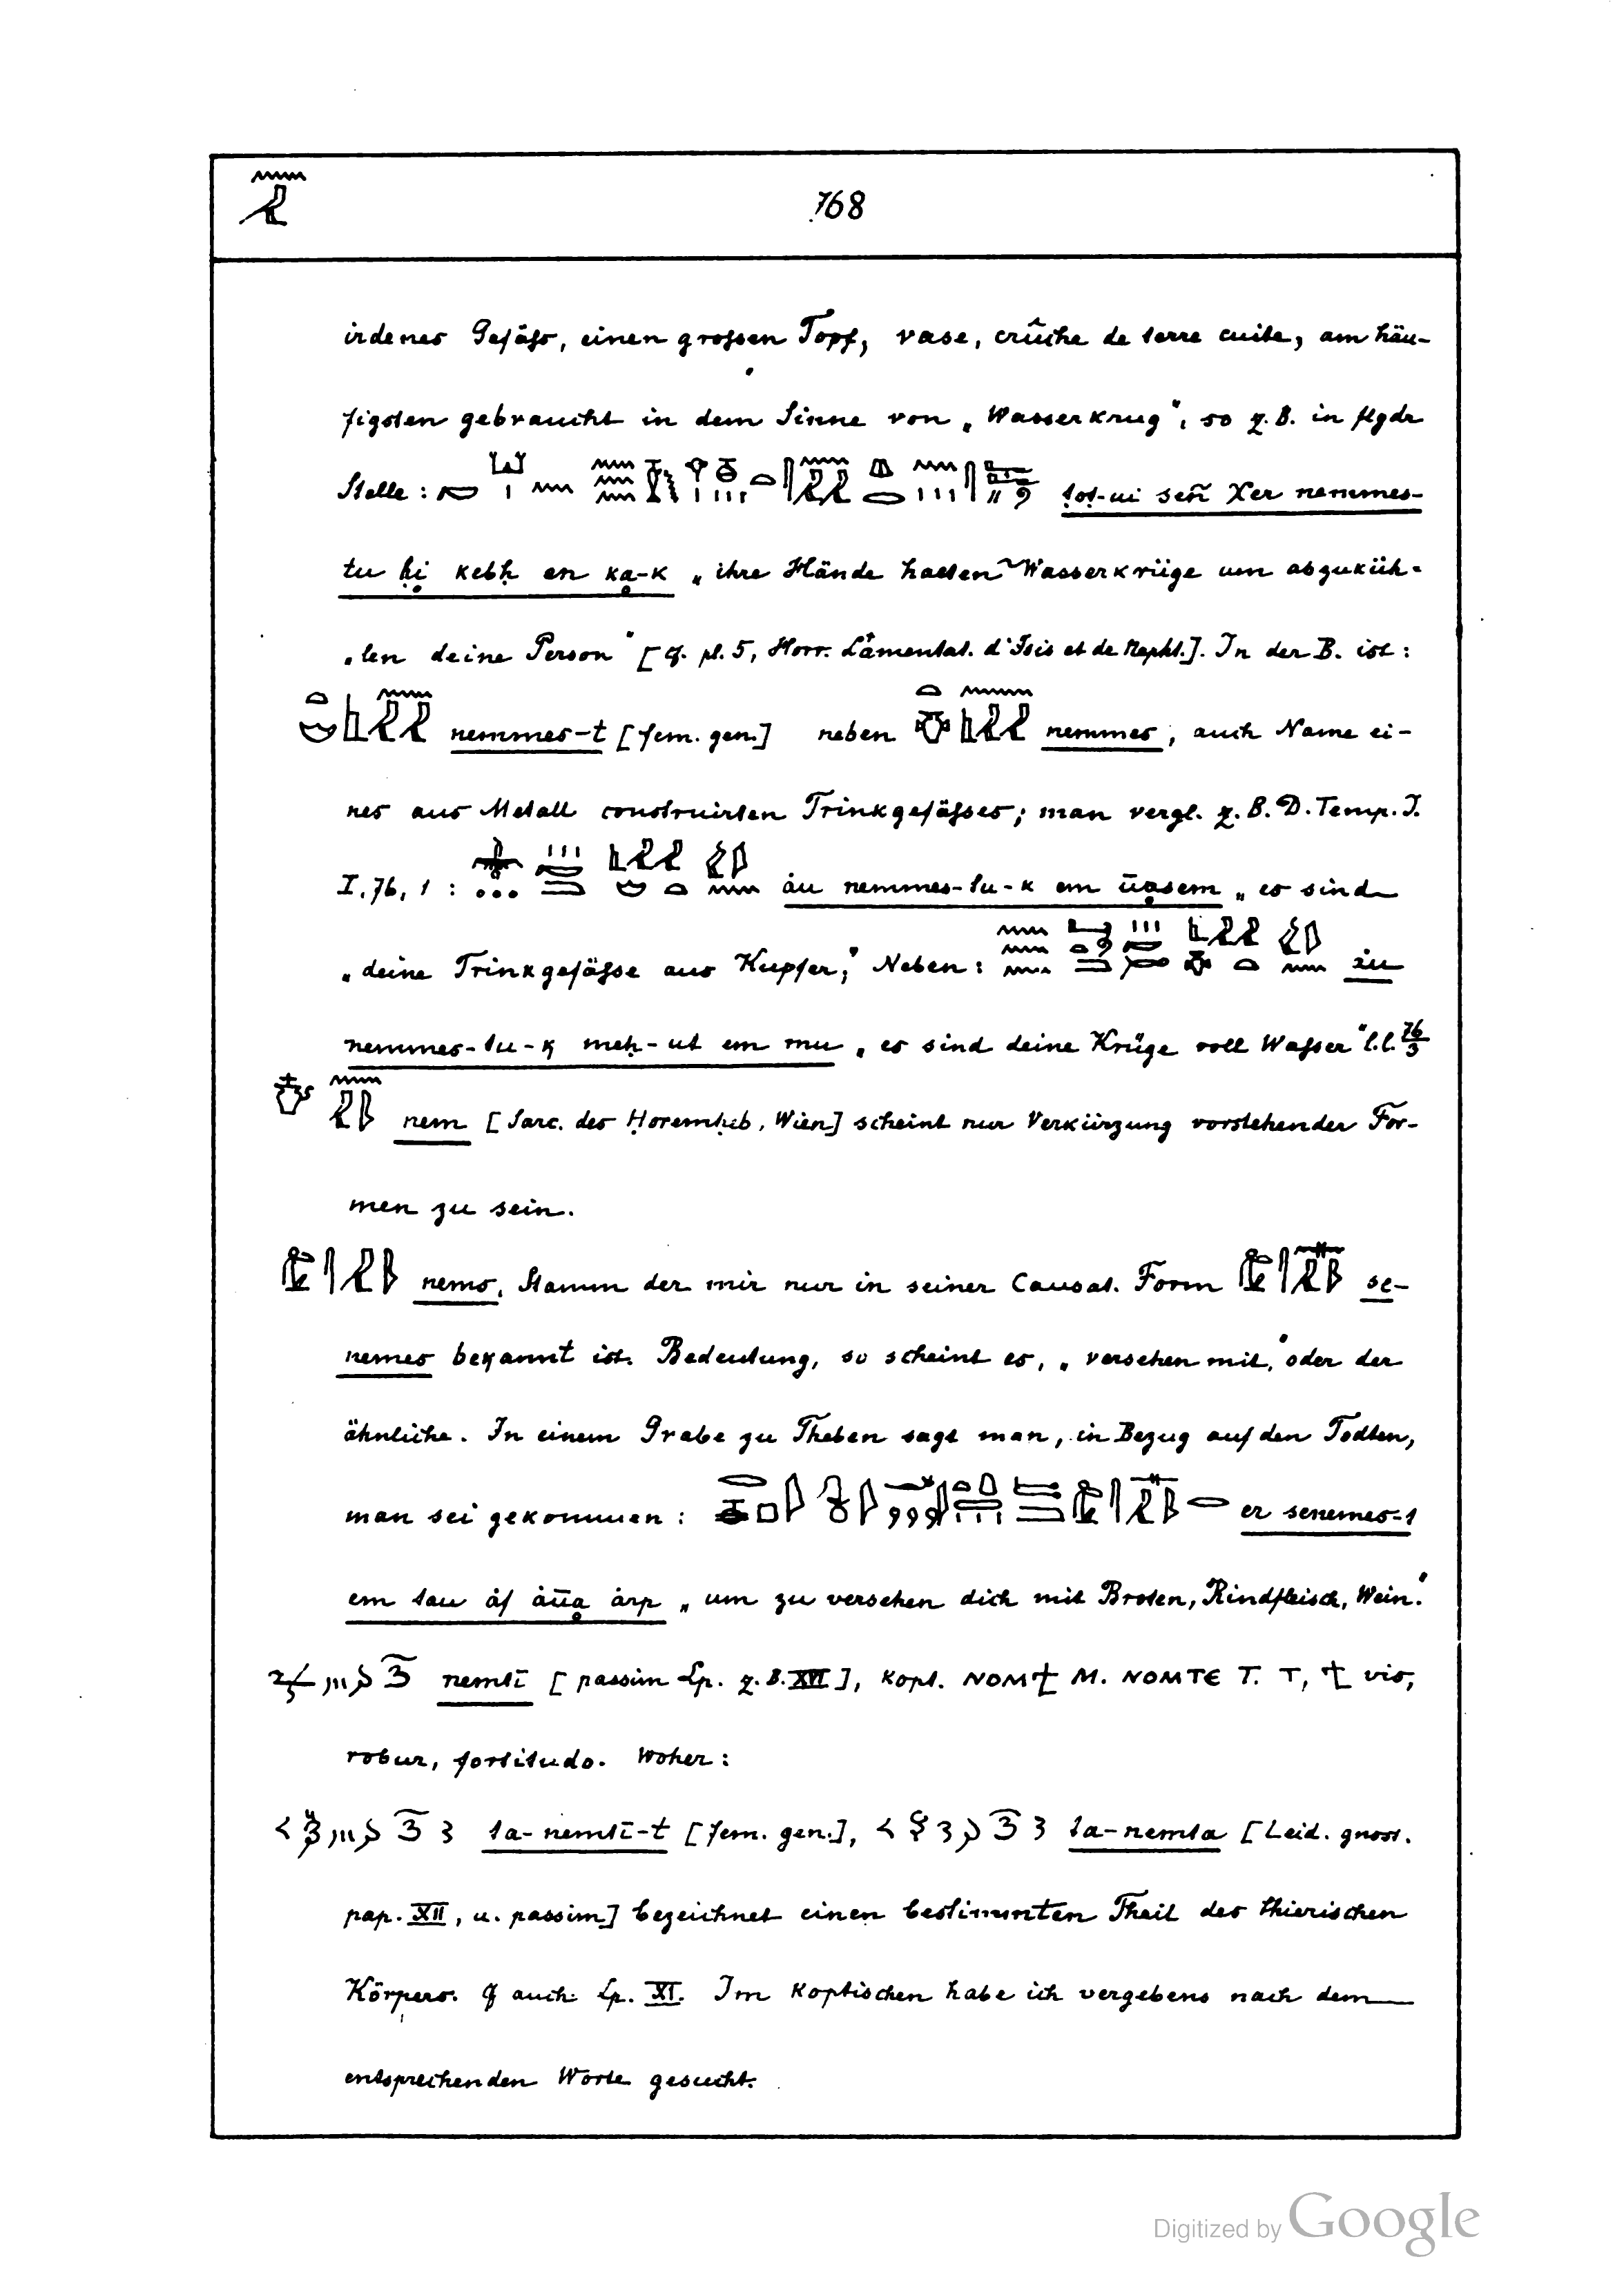 768
irdenes Gefäſs, einen groſsen Topf, vase, crûche de terre cuite, am häu-
figsten gebraucht in dem Sinne von „Wasserkrug“, so z.B. in flgdr
Stelle: ṭoṭ-ui señ χer nemmes-
tu ḥi kebḥ en ka-k „ihre Hände halten Wasserkrüge um abzuküh-
„len deine Person“ [cf. pl. 5, Horr. Lamentat. d'Isis et de Nepht.]. In der B. ist:
nemmes-t [fem. gen.] neben nemmes, auch Name ei-
nes aus Metall construirten Trinkgefäſses; man vergl. z.B. D. Temp. I.
I. 76, 1: áu nemmes-tu-k em ūasem „es sind
„deine Trinkgefäſse aus Kupfer,“ Neben: áu
nemmes-tu-k meḥ-ut em mu „es sind deine Krüge voll Waſser“ l.l. 76/3
nem [Sarc. des Ḥoremḥib, Wien] scheint nur Verkürzung vorstehender For-
men zu sein.
nems, Stamm der mir nur in seiner Causat. Form se-
nemes bekannt ist. Bedeutung, so scheint es, „versehen mit,“ oder der
ähnliche. In einem Grabe zu Theben sagt man, in Bezug auf den Todten,
man sei gekommen: er senemes-t
em tau áf áūa árp „um zu versehen dich mit Broten, Rindfleisch, Wein.“
nemtī [passim Lp. z.B. XVI], kopt. ⲚⲞⲘϮ M. ⲚⲞⲘⲦⲈ T. ⲧ, ϯ vis,
robur, fortitudo. Woher:
ta-nemtī-t [fem. gen.], ta-nemta [Leid. gnost.
pap. XII, u. passim] bezeichnet einen bestimmten Theil des thierischen
Körpers. cf auch Lp. XI. Im Koptischen habe ich vergebens nach dem
entsprechenden Worte gesucht.
Digitized by Google